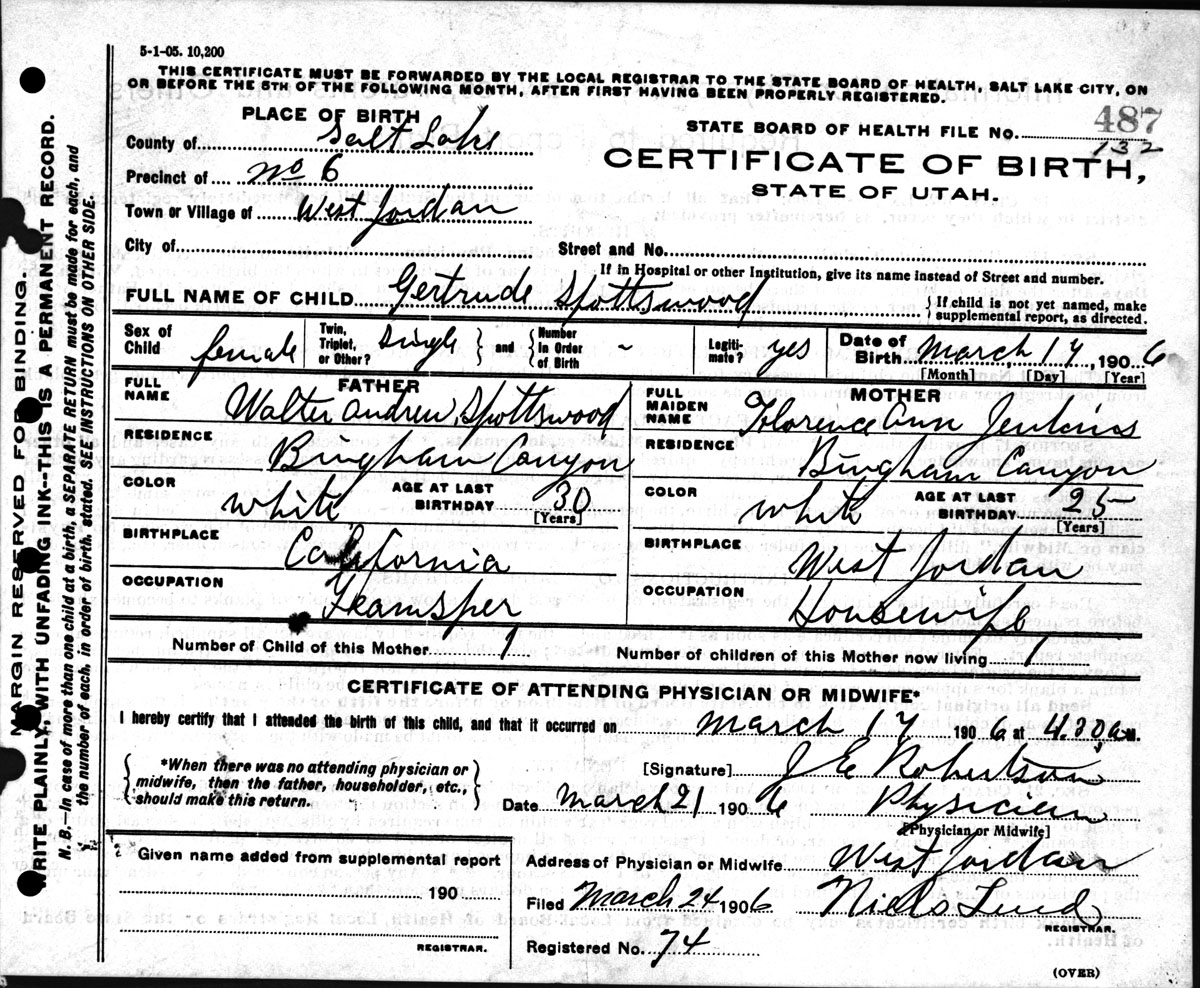 5-1-05. 10,200
THIS CERTIFICATE MUST BE FORWARDED BY THE LOCAL REGISTRAR TO THE STATE BOARD OF HEALTH, SALT LAKE CITY, ON
OR BEFORE THE 5TH OF THE FOLLOWING MONTH, AFTER FIRST HAVING BEEN PROPERLY REGISTERED.
PLACE OF BIRTH
County of Salt Lake
STATE BOARD OF HEALTH FILE No. 487
132
Precinct of No 6
CERTIFICATE OF BIRTH,
STATE OF UTAH.
Town or Village of West Jordan
City of Street and No.
If in Hospital or other Institution, give its name instead of Street and number.
FULL NAME OF CHILD Gertrude Spottswood { If child is not yet named, make supplemental report, as directed.
Sex of Child female Twin, Triplet, or Other? Single } and { Number in Order of Birth - Legitimate? yes Date of Birth March 17, 1906
[Month] [Day] [Year]
FATHER MOTHER
FULL NAME Walter Andrew Spottswood FULL MAIDEN NAME Florence Ann Jenkins
RESIDENCE Bingham Canyon RESIDENCE Bingham Canyon
COLOR white AGE AT LAST BIRTHDAY 30 [Years] COLOR white AGE AT LAST BIRTHDAY 25 [Years]
BIRTHPLACE California BIRTHPLACE West Jordan
OCCUPATION OCCUPATION Housewife
Number of Child of this Mother 1 Number of children of this Mother now living 1
CERTIFICATE OF ATTENDING PHYSICIAN OR MIDWIFE*
I hereby certify that I attended the birth of this child, and that it occurred on March 17 1906 at 4.30 a M.
{ *When there was no attending physician or midwife, then the father, householder, etc., should make this return. }
[Signature] J E Robertson
Date March 21 1906 Physician
[Physician or Midwife]
Given name added from supplemental report
190
REGISTRAR.
Address of Physician or Midwife West Jordan
Filed March 24 1906 Niels Lind
REGISTRAR.
Registered No. 74
(OVER)
MARGIN RESERVED FOR BINDING.
WRITE PLAINLY WITH UNFADING INK--THIS IS A PERMANENT RECORD.
N. B.--In case of more than one child at a birth, a SEPARATE RETURN must be made for each, and
the number of each, in order of birth, stated. SEE INSTRUCTIONS ON OTHER SIDE.